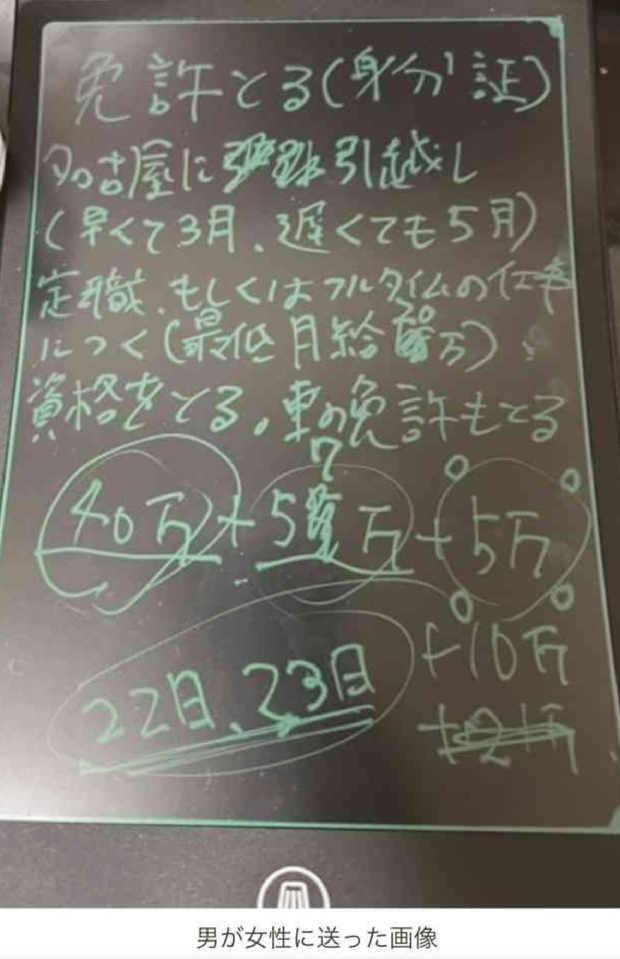 免許とる(身分証)
名古屋に引越し
(早くて3月、遅くても5月)
定職、もしくはフルタイムの仕事
につく(最低月給20万)
資格をとる。車の免許もとる
40万+57万+5万
+10万
22日、23日
男が女性に送った画像